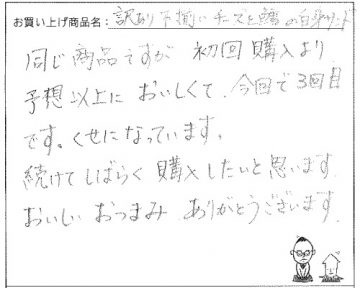 お買い上げ商品名: 訳あり不揃いチーズと鱈の白身サンド
同じ商品ですが 初回購入より
予想以上においしくて、今回で3回目
です。くせになっています。
続けてしばらく購入したいと思います。
おいしいおつまみ ありがとうございます。